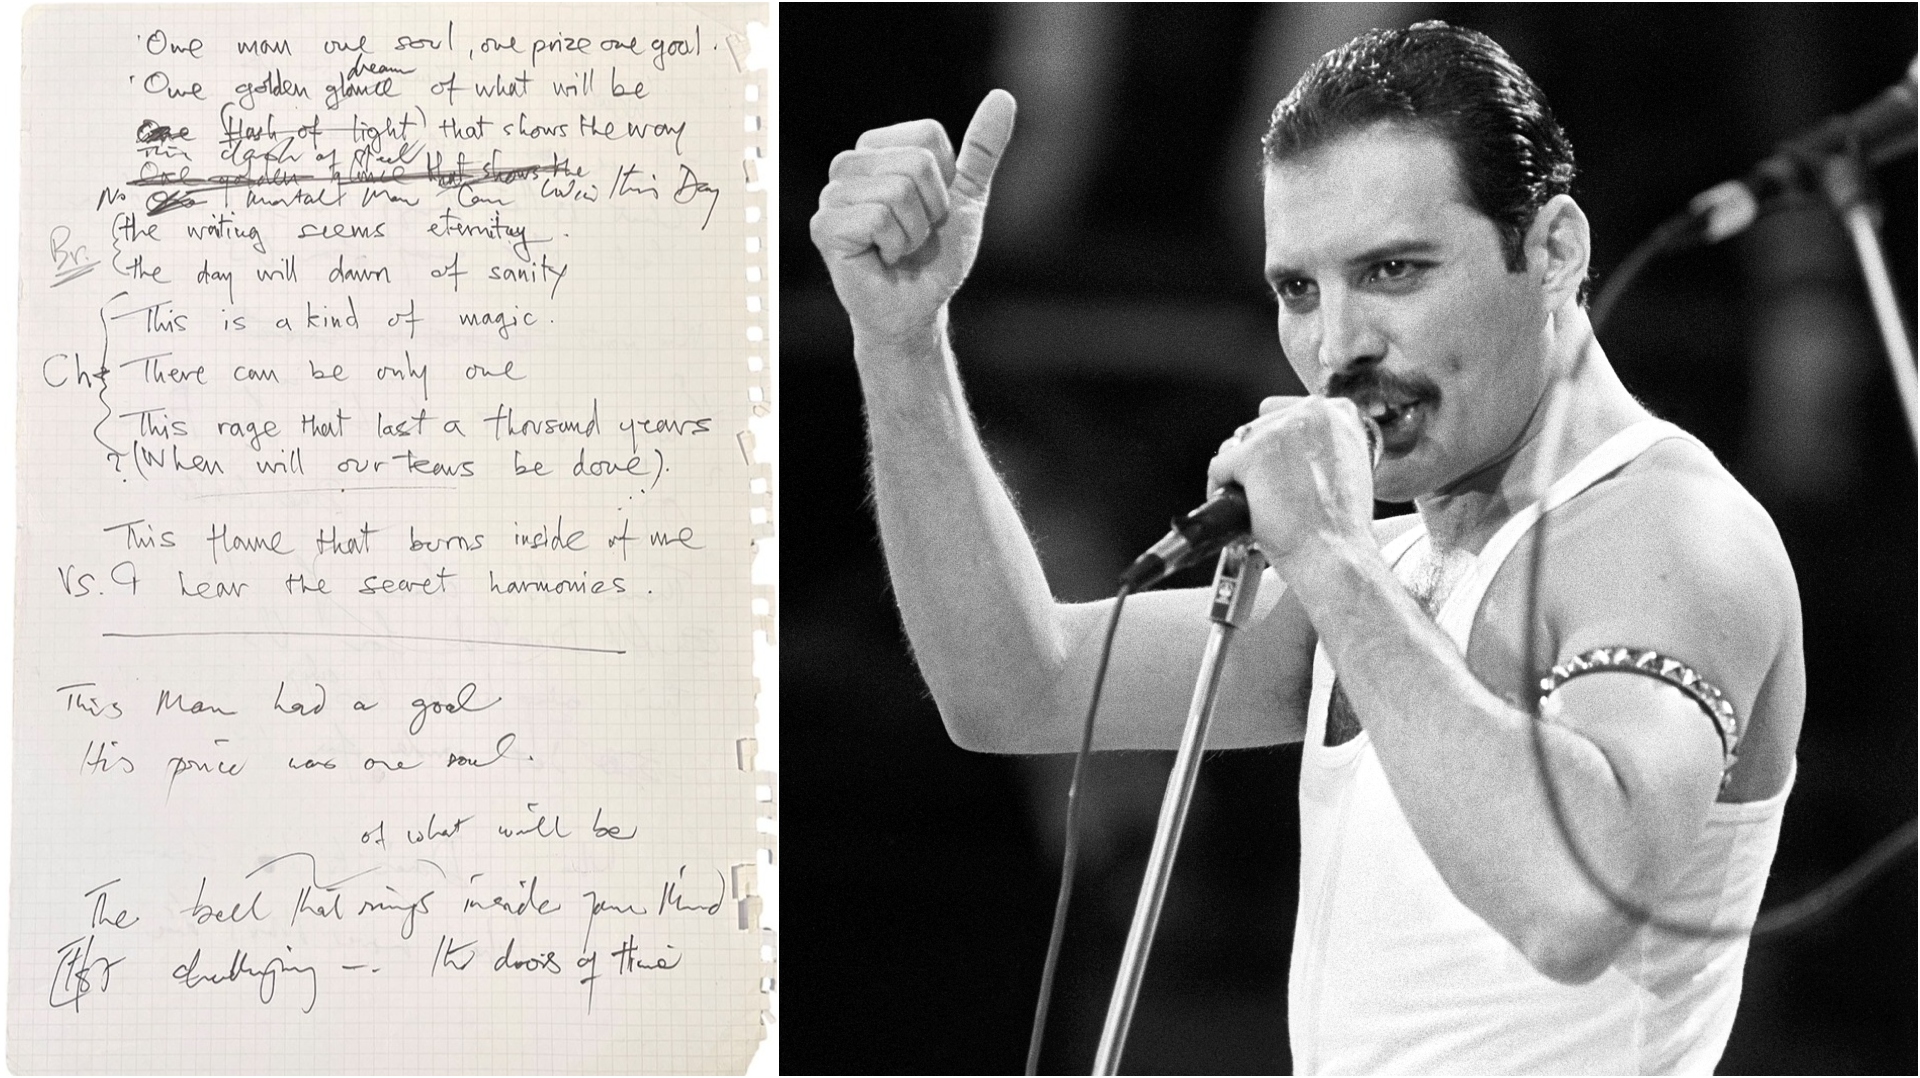 One man one soul, one prize one goal.
dream
One golden glance of what will be
One (flash of light) that shows the way
This dash of steel
One golden glance that shows the
No mortal man can win this Day
(the waiting seems eternity.
Br.
(the day will dawn of sanity
This is a kind of magic.
Ch There can be only one
This rage that last a thousand years
? (When will our tears be done).
This flame that burns inside of me
Vs. I hear the secret harmonies.
This Man had a goal
His price was one soul.
of what will be
The bell that rings inside your Mind
challenging — the doors of time